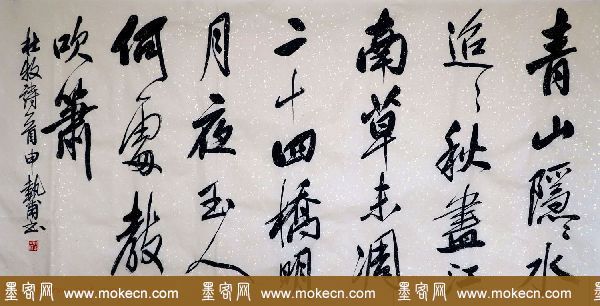 青山隱〻水
迢〻秋盡江
南草未凋
二十四橋明
月夜玉人
何處教
吹簫
杜牧詩
墨客网 www.mokecn.com 墨客网 www.mokecn.com 墨客网 www.mokecn.com 墨客网